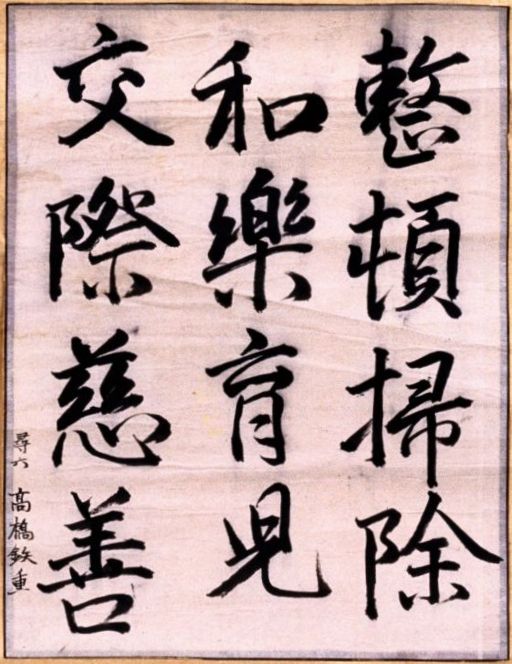 整頓掃除
和樂育児
交際慈善
尋六 高橋鉄重